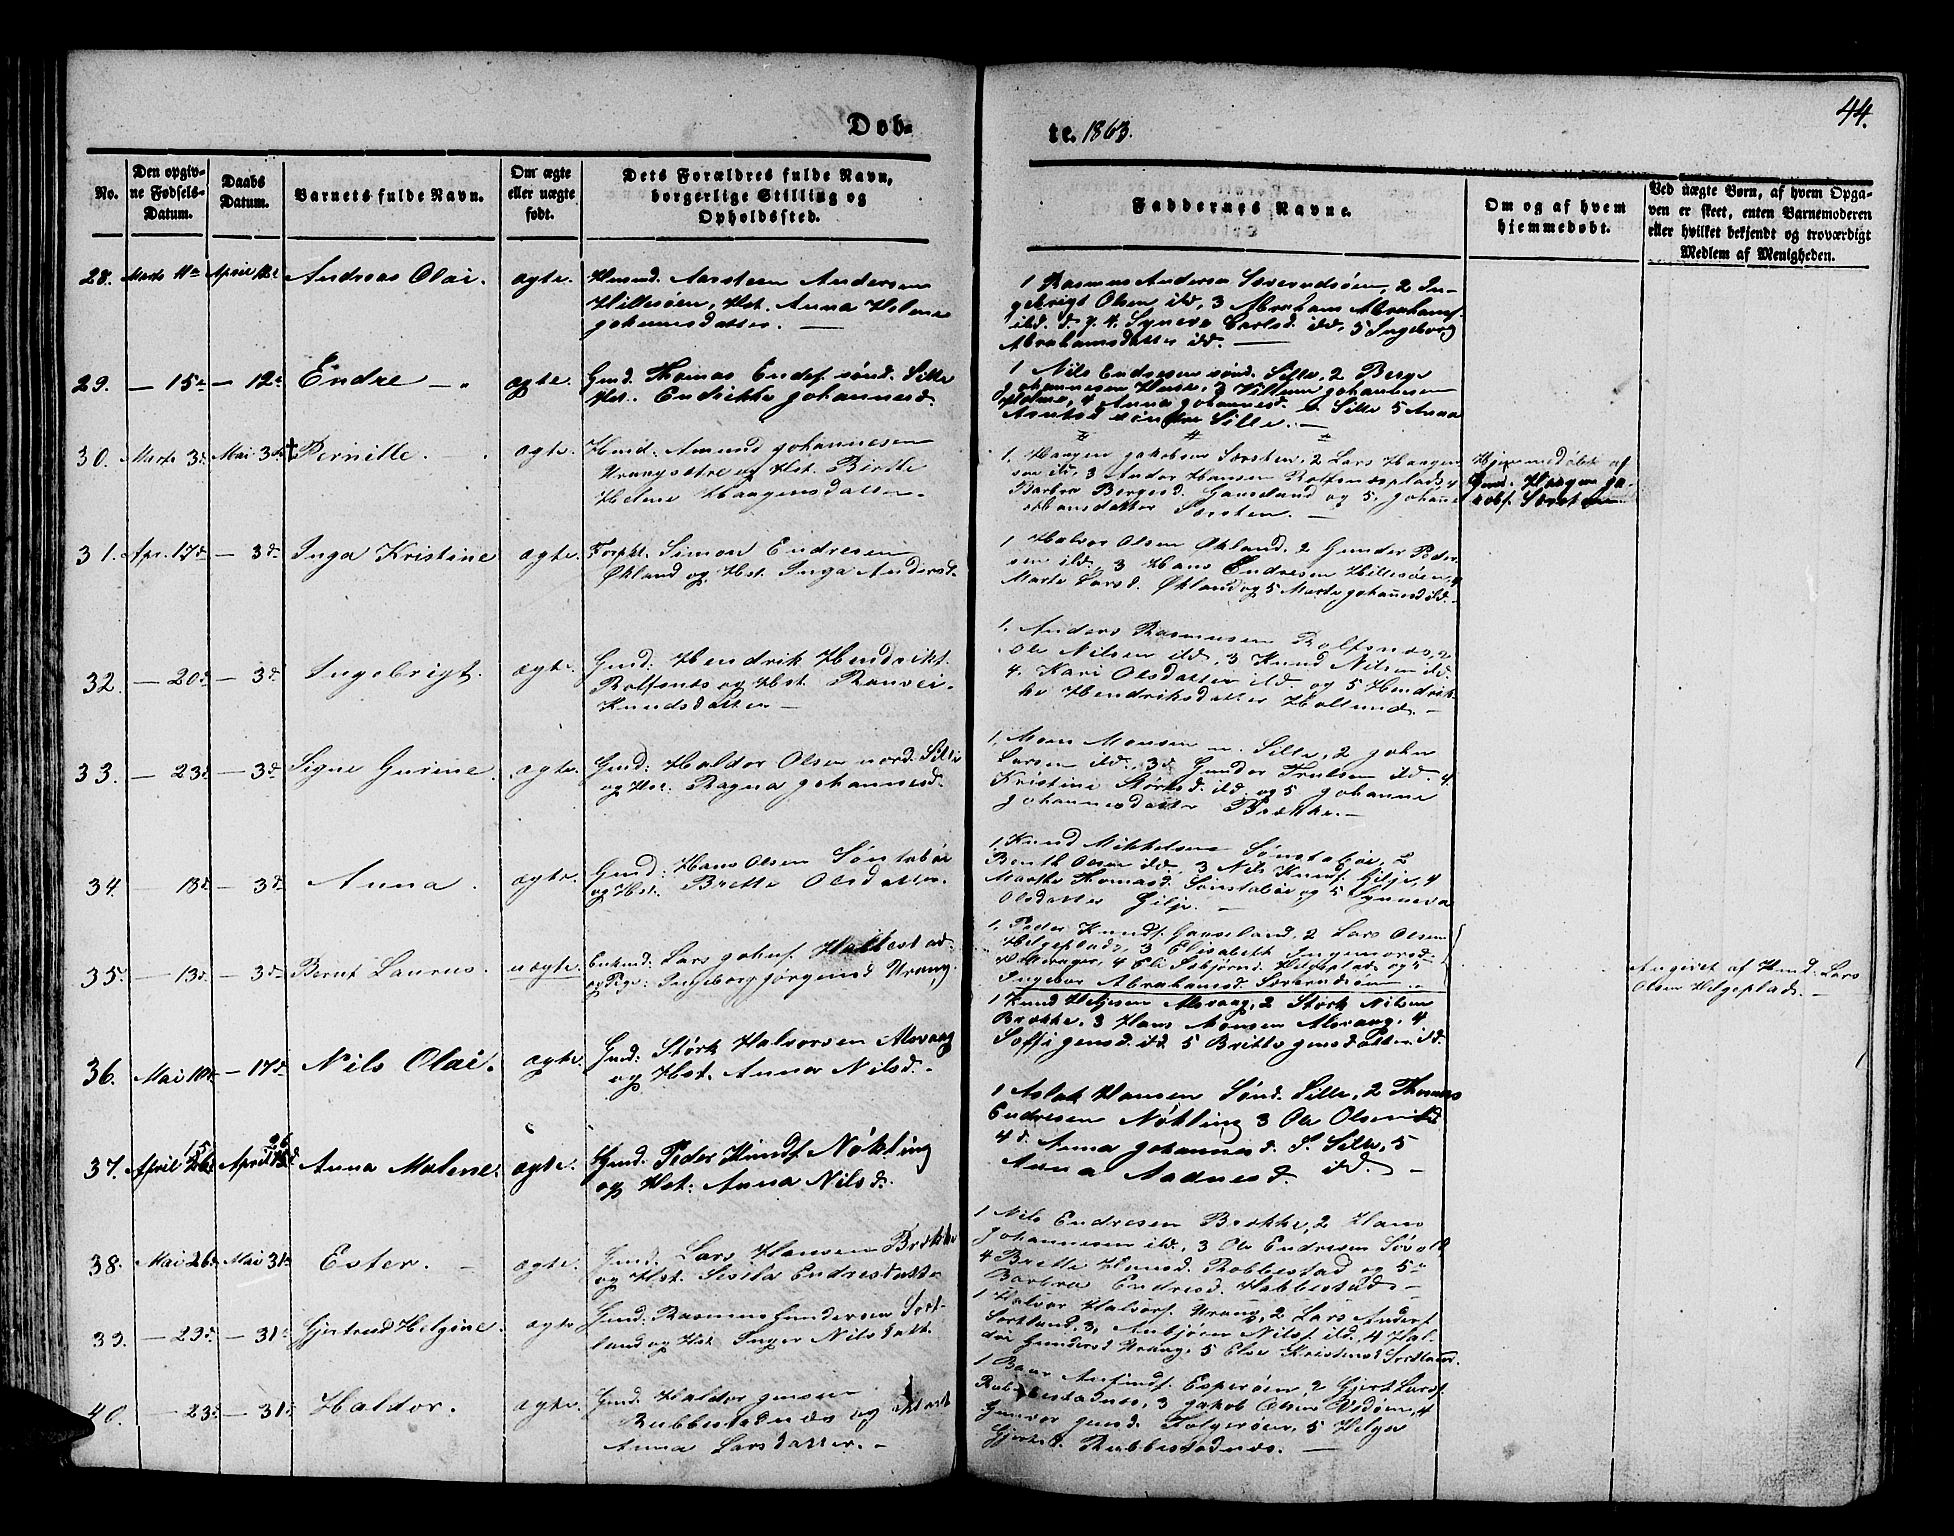 44.
Døb-
te. 1863.
No.
Den opgiv-
ne Fødsels-
Datum.
Daabs
Datum.
Barnets fulde Navn.
Om ægte
eller uægte
født.
Dets Forældres fulde Navn,
borgerlige Stilling og
Opholdssted.
Faddernes Navne.
Om og af hvem
hjemmedøbt.
Ved uægte Børn, af hvem Opga-
ven er skeet, enten Barnemoderen
eller hvilket bekjendt og troværdigt
Medlem af Menigheden.
28. Marts 11te April 12te Andreas Olai. ægte. Husmd. Aarsteen Andersen
Hillesøen, Hst. Anna Helene
Johannesdatter. —
1 Rasmus Anderse 2 In-
gebrigt Olsen ild, 3 Abraham Abrahams.
ibd. 4. Syneva Carlsd. ild, 5 Ingeborg
Abrahamsdatter ild. —
29. — 15de — 12te Endre — " ægte. Gmd. Thomas Endes. sønd. Sille
Hst. Endrikke Johannesd.
1 Nils Endresen sønd. Sille, 2 Berge
Johannesen 3 Villum Johannesen
4 Anna Johannesd. Sille 5 Anna
søndre Sille. —
30. Marts 3d. Mai 3die † Pernille. — " ægte. Husmd. Amund Johannesen
Vrangsætre og Hst. Birthe
Helene Haagensdatter —
1, Haagen Jakobsen Sørsteen, 2 Lars Haagen-
sen ild, 3 Ander Hansen Rolfsnæsplads, 4
Barbra Bergesd. Gaaseland og 5, Johanne
datter Sørsten. —
Hjemmedøbt af
Gmd. Haagen Ja-
kobs. Sørsteen
31. Apr. 17de — 3die Inga Kristine ægte. Forpkt. Simon Endresen
Økland og Hst. Inga Andersd.
1 Halvor Olsen Økland, 2 Gunder Peder-
sen ild, 3 Hans Endresen Hillesøen, 4
Marte Larsd. Økland og 5 Marte Johansd ild. —
32. — 20de — 3die Ingebrigt. ægte. Gmd: Hendrik Hendriks.
Rolfsnæs og Hst. Ranvei
Knudsdatter —
1, Anders Rasmusen Rolfsnæs, 2
Ole Nilsen ild, 3 Knud Nilsen ild.
4. Kari Olsdatter ild. og 5 Hendrik-
ke Hendriksdatter Holtund. —
33. — 23de — 3die Signe Gurine. ægte. Gmd: Haldor Olsen nord. Sille
og Hst. Ragna Johannesd.
1. Mons Monsen n. Sille, 2 John
Larsen ild, 3d Gunder Trulsen ild. 4
Kristine Størksd. ild. og 5 Johanne
Johannesdatter Brække. —
34 — 18de — 3die Anna. ægte. Gmd: Hans Olsen Sønstabøe
og Hst. Brette Olsdatter.
1, Knud Mikkelsen Sønstabøe, 2
Benth Olsen ild, 3 Nils Knuds. Gilje, 4
Marthe Thomasd. Sønstabøe og 5 Synneva
Olsdatter Gilje. —
35. — 13de — 3die Bernt Laurus. uægte. Enkmd: Lars Johns. Hallestad
og Pige: Ingeborg Jørgensd Vrang.
1, Peder Knuds. Gaaseland, 2 Lars Olsen
Helgeplads, 3 Elisabeth Ingemorsd.
4 Eli Esbjørnsd. Helgeplads og 5
Ingebor Abrahamsd.
Angivet af Husmd: Lars
Olsen Helgeplads. —
36. Mai 10de — 17de Nils Olai. ægte. Gmd: Størk Halvorsen Alvraag
og Hst. Anna Nilsd. —
1 Knud Helgesen Alvraag, 2 Størk Nilsen
Brække, 3 Hans Monsen Alvraag, 4
Soffi Jensd. ild. 5 Britte Jensdatter ild.
37. April 15 26 April 26 Anna Malene. ægte. Gmd. Peder Knuds. Nøkling
og Hst: Anna Nilsd.
1 Aslak Hansen Sønd. Sille, 2 Thomas
Endresen Nøkling 3 Ole Olsen ild
4d. Anna Johannesd. S. Sille, 5
Anna Aadnesd. ild. —
38. Mai 26de Mai 31te Ester. — ægte. Gmd. Lars Hansen Brække
og Hst. Sisila Endresdatte
1 Nils Endresen Brække, 2 Hans
Johannesen ild, 3 Ole Endresen
4 Brette Hansd. Robbestad og 5te
Barbra Endresd. Habbestad —
39. — 23de — 31te Gjertrud Helgine. ægte Gmd. Rasmus Gundersen Sort-
land og Hst. Inger Nilsdatt.
1 Halvor Halvors. Vrang, 2 Lars Anders.
Sortland, 3, Anbjøen Nils. ild, 4 Hal-
Gundersd Vrang, 5 Else Kristensd Sortland.
40. — 23de — 31te Haldor. ægte. Gmd. Haldor Jensen
Rubbestadnæs og Hst
Anna Larsdatter. —
1 Baar Esperøen, 2 Gjert Lars.
Rubbestadnæs, 3 Jakob Olsen 4
Gunvor Jensd. Folgerøen, 5 Helga
Gjertsd. Rubbestadnæs. —